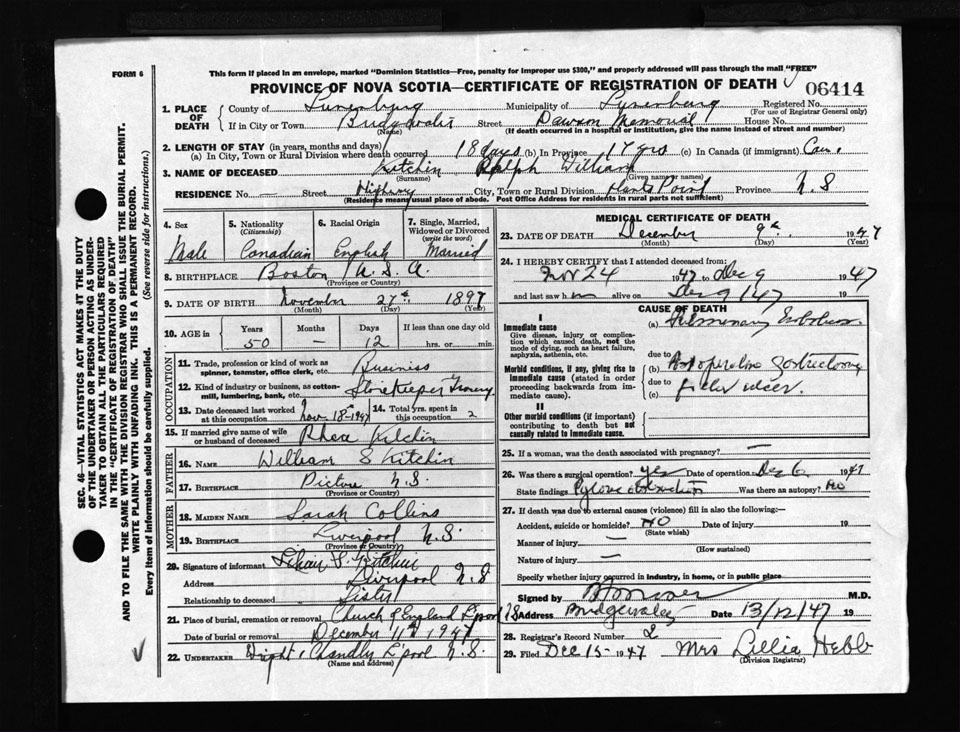 FORM 6
This form if placed in an envelope, marked "Dominion Statistics—Free, penalty for improper use $300," and properly addressed will pass through the mail "FREE"
PROVINCE OF NOVA SCOTIA—CERTIFICATE OF REGISTRATION OF DEATH
06414
1. PLACE OF DEATH County of Lunenburg Municipality of Lunenburg Registered No.
(For use of Registrar General only)
If in City or Town Bridgewater Street Dawson Memorial House No.
(Name) (If death occurred in a hospital or institution, give the name instead of street and number)
2. LENGTH OF STAY (in years, months and days)
(a) In City, Town or Rural Division where death occurred 18 days (b) In Province 17 yrs (c) In Canada (if immigrant) Can.
3. NAME OF DECEASED Kitchin Ralph William
(Surname) (Given name or names)
RESIDENCE No. — Street Highway City, Town or Rural Division Hunts Point Province N.S
(Residence means usual place of abode. Post Office Address for residents in rural parts not sufficient)
4. Sex
Male
5. Nationality (Citizenship)
Canadian
6. Racial Origin
English
7. Single, Married, Widowed or Divorced (write the word)
Married
8. BIRTHPLACE Boston U.S.A.
(Province or Country)
9. DATE OF BIRTH November 27th 1897
(Month) (Day) (Year)
10. AGE in Years Months Days If less than one day old
50 — 12 hrs. or min.
OCCUPATION
11. Trade, profession or kind of work as spinner, teamster, office clerk, etc. Business
12. Kind of industry or business, as cotton-mill, lumbering, bank, etc. StoreKeeper Grocery
13. Date deceased last worked at this occupation Nov 18-1947 14. Total yrs. spent in this occupation 2
15. If married give name of wife or husband of deceased Rhea Kitchin
FATHER
16. NAME William S Kitchin
17. BIRTHPLACE Pictou N.S.
(Province or Country)
MOTHER
18. MAIDEN NAME Sarah Collins
19. BIRTHPLACE Liverpool N.S.
(Province or Country)
20. Signature of informant Kitchin
Address Liverpool N.S
Relationship to deceased Sister
21. Place of burial, cremation or removal Church of England L'pool N.S
Date of burial or removal December 11th 1947
22. UNDERTAKER Wright & Chandler L'pool N.S.
(Name and address)
MEDICAL CERTIFICATE OF DEATH
23. DATE OF DEATH December 9th 1947
(Month) (Day) (Year)
24. I HEREBY CERTIFY that I attended deceased from:
Nov 24 1947 to Dec 9 1947
and last saw h im alive on Dec 9 1947 19
CAUSE OF DEATH
I
Immediate cause
Give disease, injury or complication which caused death, not the mode of dying, such as heart failure, asphyxia, asthenia, etc.
(a) Pulmonary Embolism
due to
Morbid conditions, if any, giving rise to immediate cause (stated in order proceeding backwards from immediate cause).
(b) Postoperative
due to
(c) ulcer
II
Other morbid conditions (if important) contributing to death but not causally related to immediate cause.
25. If a woman, was the death associated with pregnancy? —
26. Was there a surgical operation? yes Date of operation Dec 6 1947
State findings Pyloric obstruction Was there an autopsy? No
27. If death was due to external causes (violence) fill in also the following:—
Accident, suicide or homicide? NO Date of injury 19
(State which)
Manner of injury —
(How sustained)
Nature of injury —
Specify whether injury occurred in industry, in home, or in public place
Signed by M.D.
Address Bridgewater Date 13/12/47 19
28. Registrar's Record Number 2
29. Filed Dec 15- 1947 Mrs Lillia Hebb
(Division Registrar)
SEC. 46—VITAL STATISTICS ACT MAKES IT THE DUTY OF THE UNDERTAKER OR PERSON ACTING AS UNDERTAKER TO OBTAIN ALL THE PARTICULARS REQUIRED IN THE "CERTIFICATE OF REGISTRATION OF DEATH" AND TO FILE THE SAME WITH THE DIVISION REGISTRAR WHO SHALL ISSUE THE BURIAL PERMIT.
WRITE PLAINLY WITH UNFADING INK. THIS IS A PERMANENT RECORD.
Every item of information should be carefully supplied. (See reverse side for instructions.)